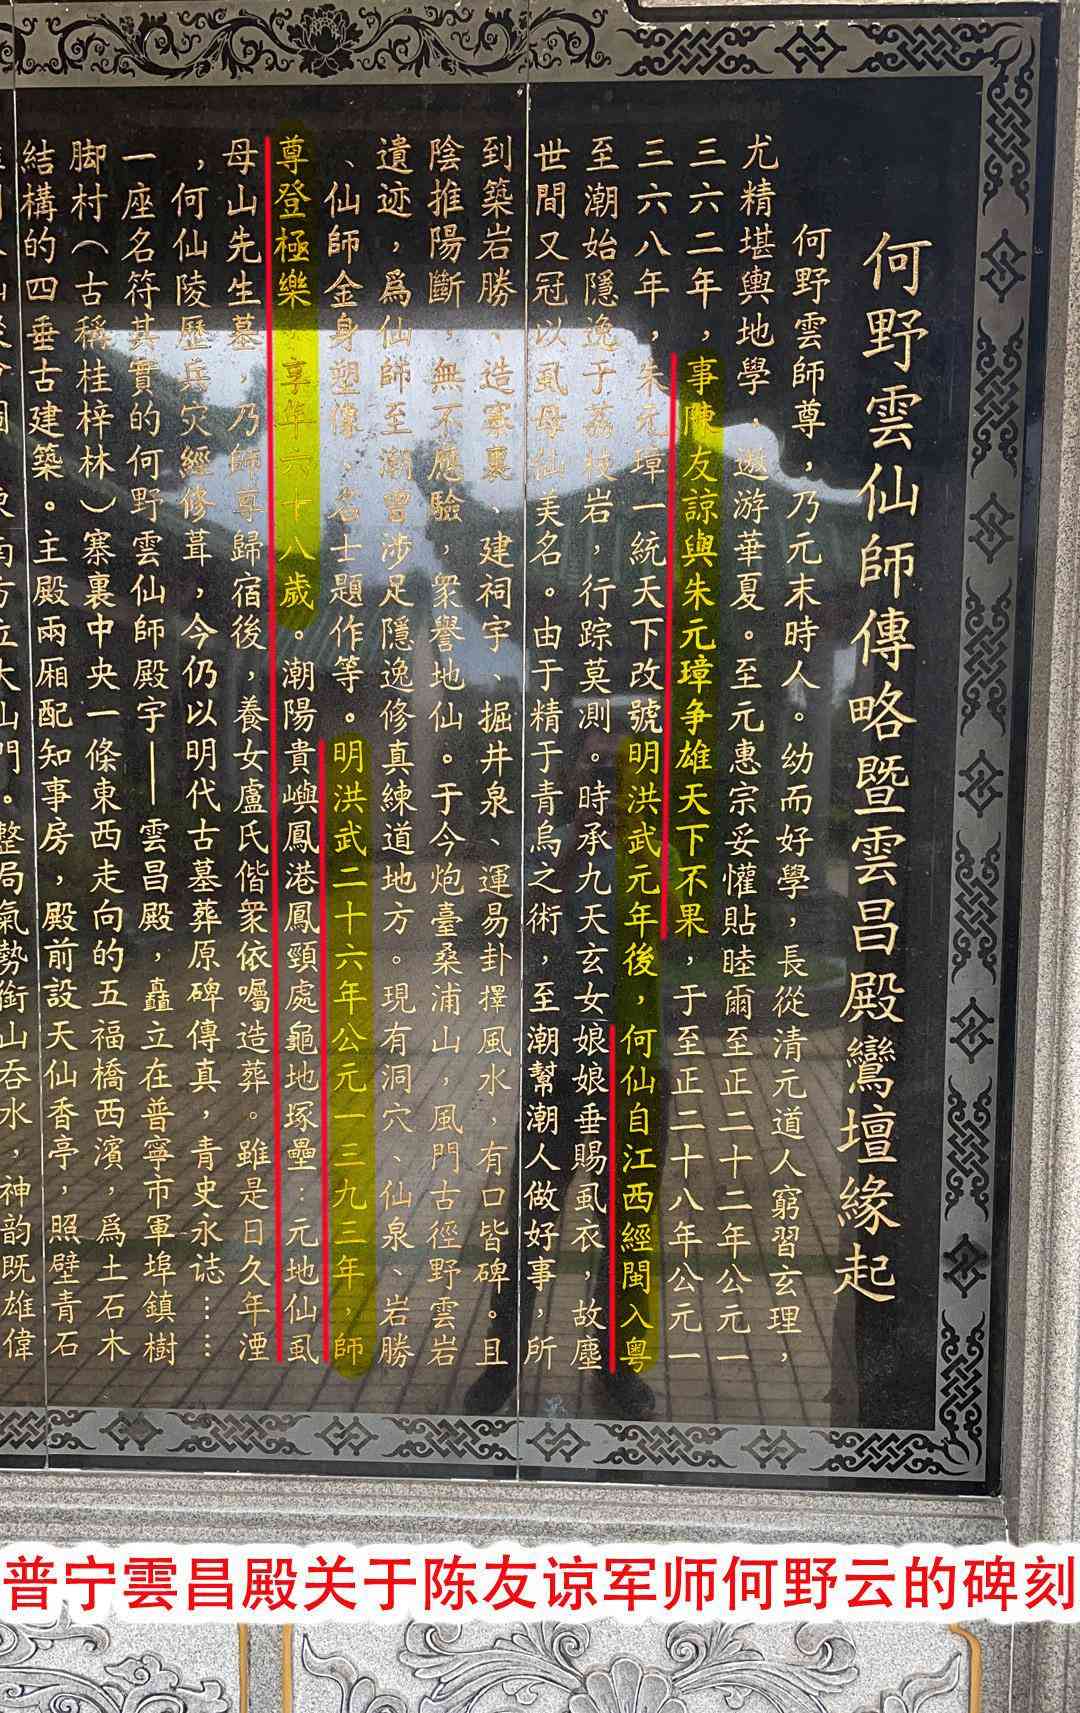 何野雲仙師傳略暨雲昌殿鸞壇緣起
何野雲師尊，乃元末時人。幼而好學，長從清元道人窮習玄理，
尤精堪輿地學．遨游華夏。至元惠宗妥懽貼睦爾至正二十二年公元一
三六二年，事陳友諒與朱元璋争雄天下不果，于至正二十八年公元一
三六八年，朱元璋一統天下改號明洪武元年後，何仙自江西經閩入粤
至潮始隱逸于荔枝岩，行踪莫測。時承九天玄女娘娘垂賜虱衣，故塵
世間又冠以虱母仙美名。由于精于青烏之術，至潮幫潮人做好事，所
到築岩勝、造寨裏、建祠宇、掘井泉、運易卦擇風水，有口皆碑。且
陰推陽斷，無不應驗，衆譽地仙。于今炮臺桑浦山，風門古徑野雲岩
遺迹，爲仙師至潮曾涉足隱逸修真練道地方。現有洞穴、仙泉、岩勝
、仙師金身塑像，名士題作等。明洪武二十六年公元一三九三年，師
尊登極樂，享年六十八歲。潮陽貴嶼鳳港鳳頸處龜地塚壘：元地仙虱
母山先生墓，乃師尊歸宿後，養女盧氏偕衆依囑造葬。雖是日久年湮
，何仙陵歷兵灾經修葺，今仍以明代古墓葬原碑傳真，青史永誌……
一座名符其實的何野雲仙師殿宇——雲昌殿，矗立在普寧市軍埠鎮樹
脚村（古稱桂梓林）寨裏中央一條東西走向的五福橋西濱，爲土石木
結構的四垂古建築。主殿兩厢配知事房，殿前設天仙香亭，照壁青石
南方立大山門。整局氣勢銜山吞水，神韵既雄偉
普宁雲昌殿关于陈友谅军师何野云的碑刻